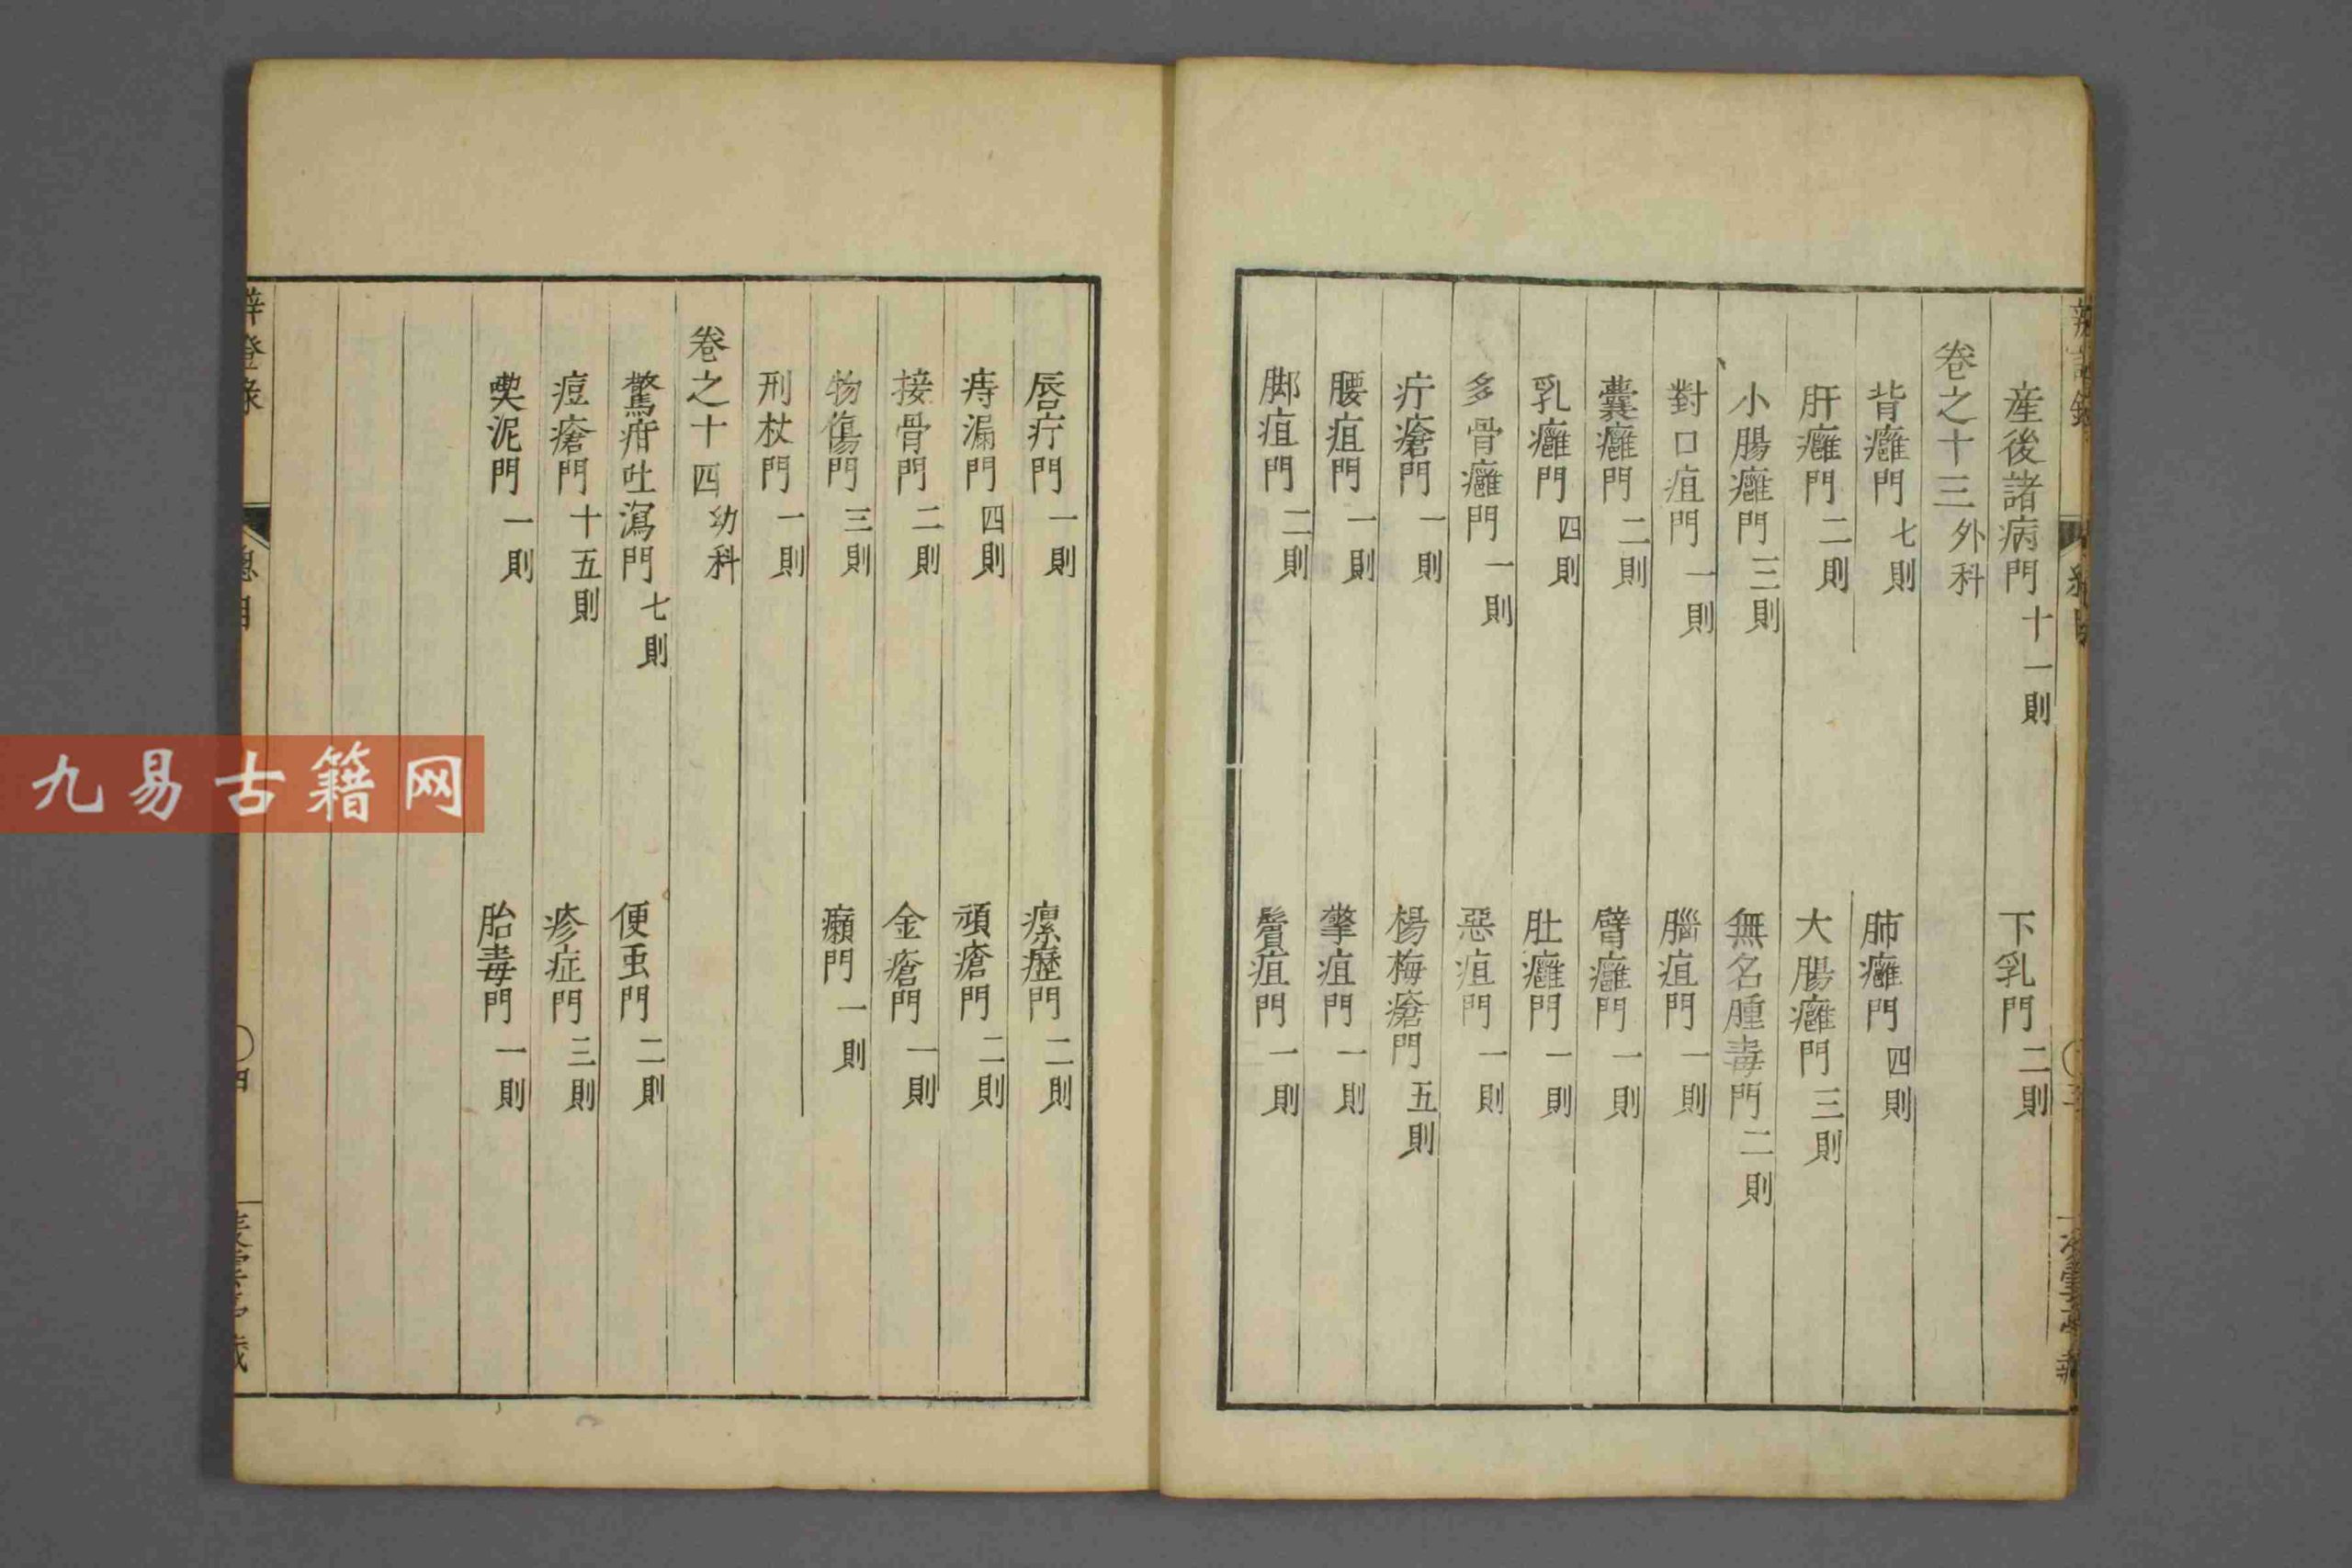 產後諸病門 十一則　下乳門 二則
卷之十三 外科
背癰門 七則　肺癰門 四則
肝癰門 二則　大腸癰門 三則
小腸癰門 三則　無名腫毒門 二則
對口疽門 一則　腦疽門 一則
囊癰門 二則　臂癰門 一則
乳癰門 四則　肚癰門 一則
多骨癰門 一則　惡疽門 一則
疔瘡門 一則　楊梅瘡門 五則
腰疽門 一則　擎疽門 一則
脚疽門 二則　鬢疽門 一則
唇疔門 一則　瘰癧門 二則
痔漏門 四則　頑瘡門 二則
接骨門 二則　金瘡門 一則
物傷門 三則　癩門 一則
刑杖門 一則
卷之十四 幼科
驚疳吐瀉門 七則　便虫門 二則
痘瘡門 十五則　疹症門 三則
喫泥門 一則　胎毒門 一則
九易古籍网